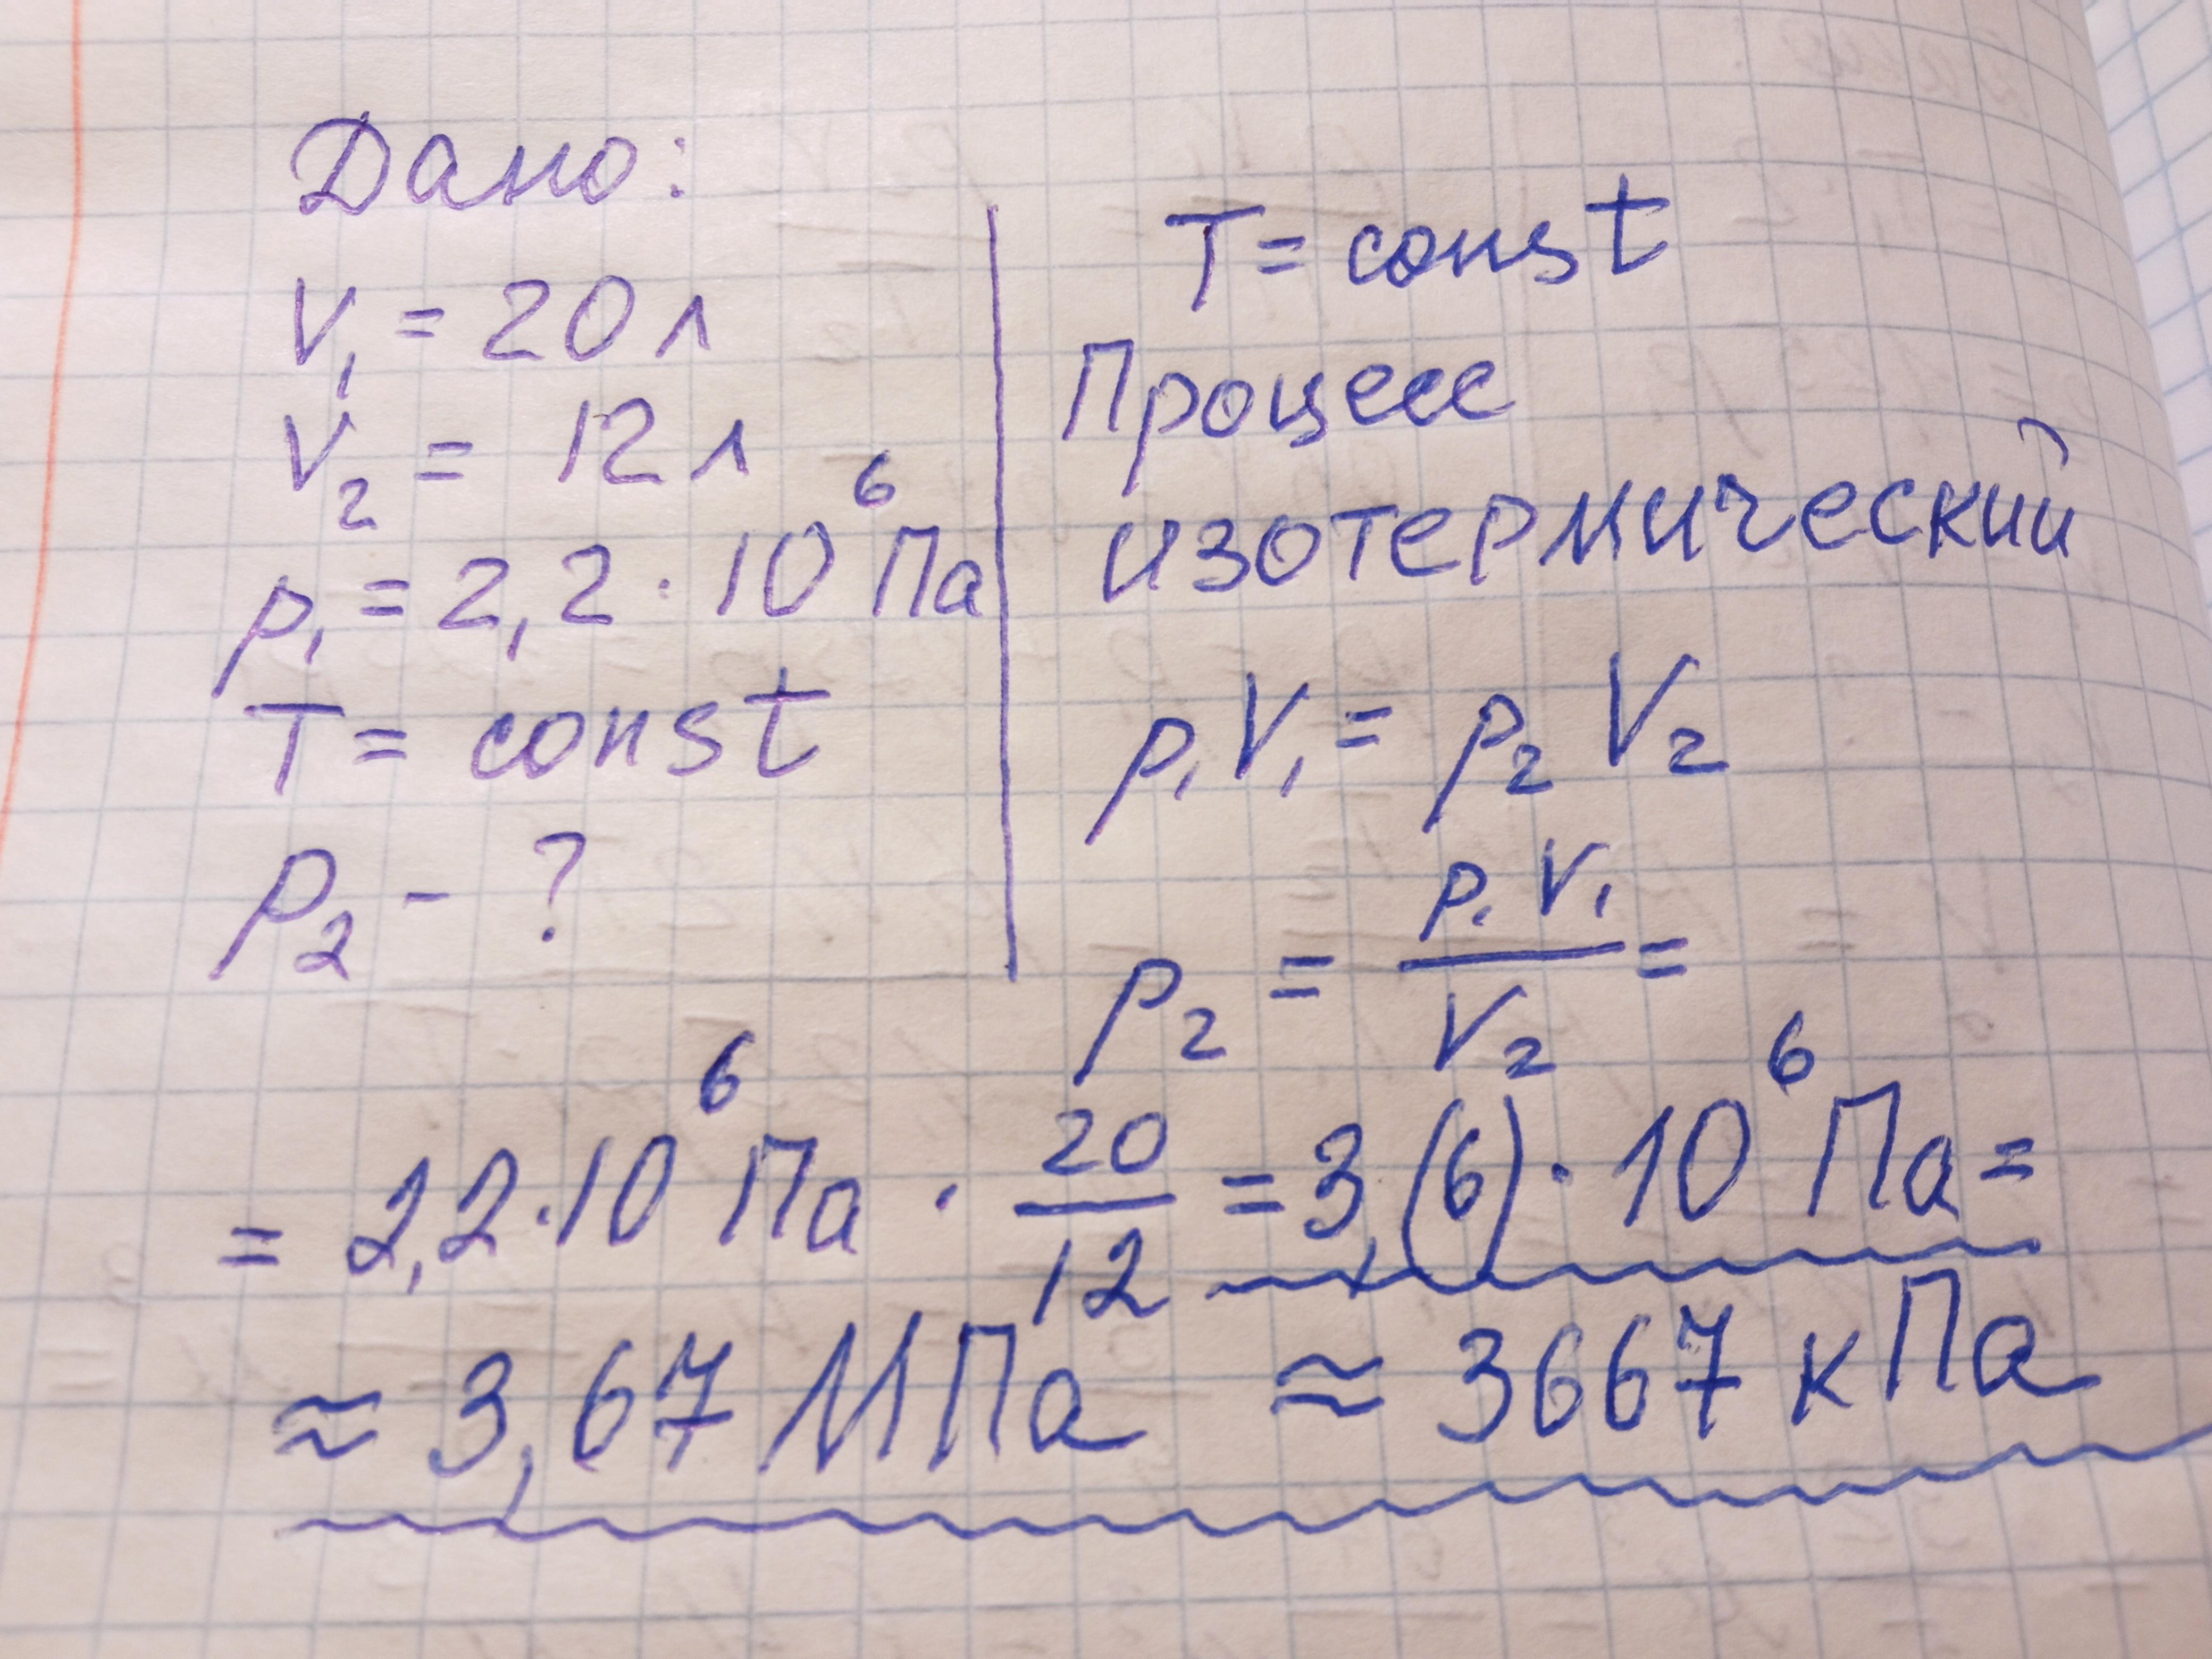 Дано:
V₁ = 20 л
V₂ = 12 л
p₁ = 2,2 · 10⁶ Па
T = const
p₂ - ?
T = const
Процесс
изотермический
p₁V₁ = p₂V₂
p₂ = p₁V₁/V₂ =
= 2,2 · 10⁶ Па · 20/12 = 3,(6) · 10⁶ Па =
≈ 3,67 МПа ≈ 3667 кПа